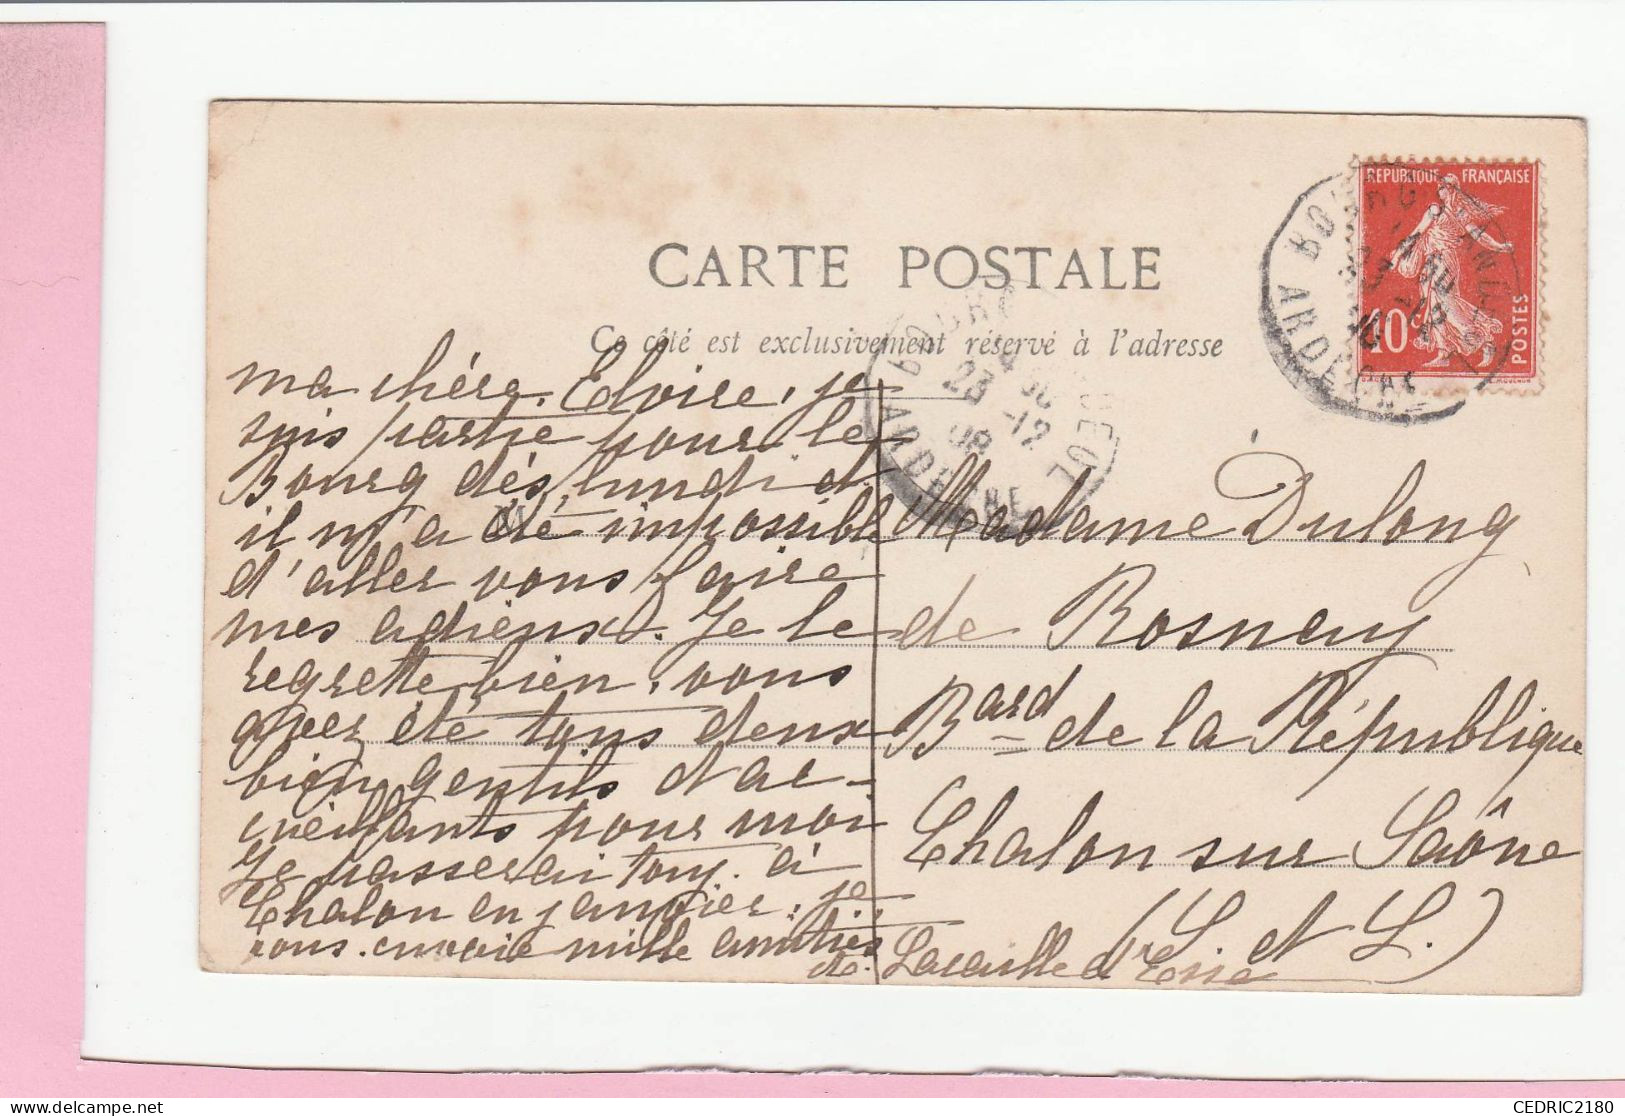 CARTE POSTALE
Ce côté est exclusivement réservé à l'adresse
REPUBLIQUE FRANÇAISE
10c
POSTES
ARDECHE
23 -12
08
ARDECHE
ma chére Elvire, je
suis partie pour le
Bourg dés lundi et
il m'a été impossible
d'aller vous faire
mes adieux. Je le
regrette bien, vous
avez été tous deux
bien gentils et ac-
cueillants pour moi
Je passerai à
Chalon en janvier, je
vous envoie mille amitiés
Madame Dulong
de Rosnay
Bard de la République
Chalon sur Saône
(S. et L.)
CEDRIC2180